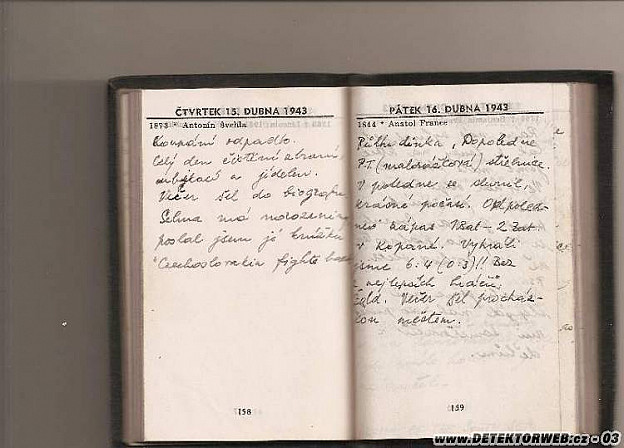 ČTVRTEK 15. DUBNA 1943
1873 * Antonín Švehla
Koupání odpadlo.
Celý den čištění zbraní,
a jídelen.
Večer šel do biografu
Selma má narozeniny
poslal jsem jí knížku
"Czechoslovakia fights back
158
PÁTEK 16. DUBNA 1943
1844 * Anatol France
Dopoledne
P.T. (malorážková) střelnice.
V poledne se
krásné počasí. Odpoled-
ne zápas Vbat - 2 bat
v kopané. Vyhráli
jsme 6:4 (0:3)!! Bez
nejlepších hráčů;
Večer šel procház-
kou městem.
159
www.DETEKTORWEB.cz - 03